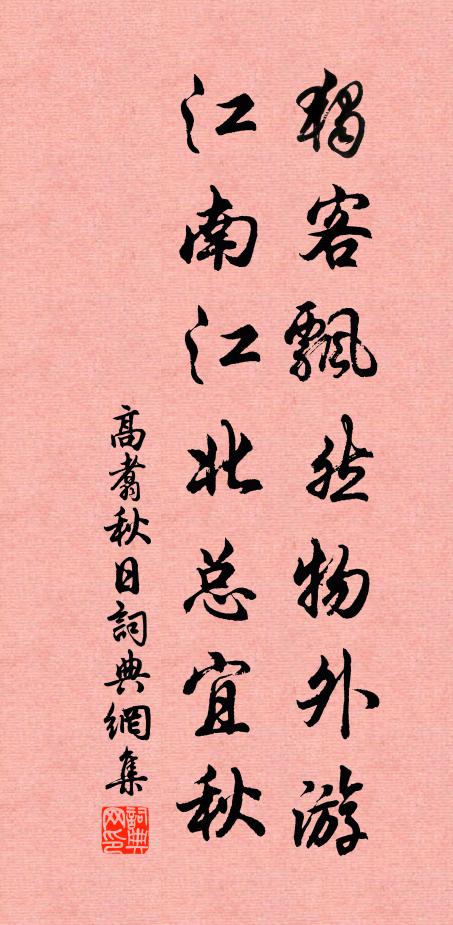 獨客飄然物外游
江南江北总宜秋
高翥秋日詞典網集
詞典网印